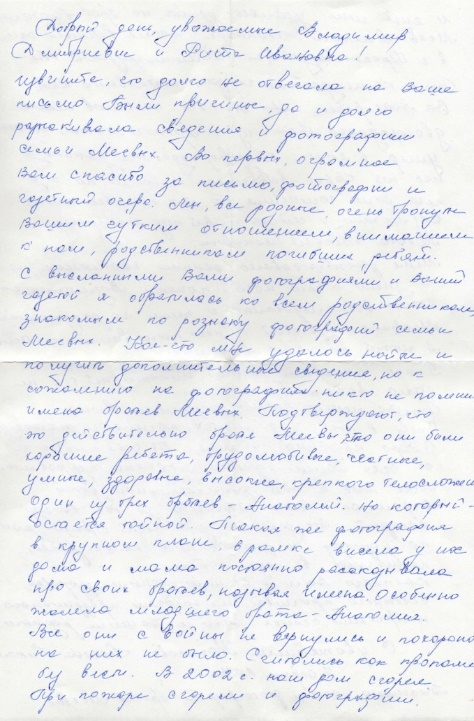 Добрый день, уважаемые Владимир
Дмитриевич и Риста Ивановна!
Извините, что долго не отвечала на Ваше
письмо. Были причины, да и долго
разыскивала сведения и фотографии
семьи Меевых. Во первых, огромное
Вам спасибо за письмо, фотографии и
газетный очерк. Мы, все родные, очень тронуты
Вашим чутким отношением, вниманием
к нам, родственникам погибших ребят.
С высланными Вами фотографиями и Вашей
газетой я обратилась ко всем родственникам,
знакомым по розыску фотографий семьи
Меевых. Кое-что мне удалось найти и
получить дополнительные сведения, но к
сожалению на фотографиях никто не помнит
имена братьев Меевых. Подтверждают, что
это действительно братья Меевы, что они были
хорошие ребята, трудолюбивые, честные,
умные, здоровые, высокие, крепкого телосложения
один из трех братьев - Анатолий. Но который -
остается тайной. Такая же фотография
в крупном плане в рамке висела у нас
дома и мама постоянно рассказывала
про своих братьев, называя имена. Особенно
жалела младшего брата - Анатолия.
Все они с войны не вернулись и похоронок
на них не было. Считались как пропали
без вести. В 2002 г. наш дом сгорел
При пожаре сгорели и фотографии.